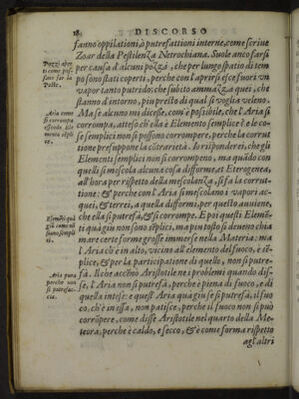 DISCORSO
fanno oppilationi, ò putrefattioni interne, come scriue
Zoar della Pestilenza Netrochiana. Suole anco farsi
per causa d'alcuni pozzi, che per lungo spatio di tem
po sono stati coperti, perche con l'aprirsi esce fuori vn
vapor tanto putrido; che subito ammazza quei, che
stanno d'intorno, più presto di qual si voglia veleno.
Ma se alcuno mi dicesse, com'è possibile, che l'Aria si
corrompa, atteso ch'ella è Elemento semplice è le co
se semplici non si possono corrompere, perche la corrut
tione presuppone la cōtrarietà. Io risponderei, che gli
Elementi semplici non si corrompeno, ma quādo con
quelli si mescola alcuna cosa difforme, et Eterogenea,
all'hora per rispetto della mescolanza, si fa la corrut-
tione: & perche con l'Aria si mescolano i vapori ac-
quei, & terrei, a quella difformi, per questo auuiene,
che ella si putrefà, & si corrompe. E poi questi Elemēti
quà giù non sono semplici, ma più tosto si deueno chia
mare certe forme grosse immerse nella Materia; ma
l'Aria ch'è in alto, vicina all'elemento del fuoco, è sē
plice, & per la participatione di quello, non si putre-
fà. Il che accēnò Aristotile ne i problemi quando dis-
se, l'Aria non si putrefà, perche è piena di fuoco, e di
quella intese: e quest'Aria quà giù se si putrefà, il fuo
co, ch'è in essa, non patisce, perche il fuoco non si può
corrōpere, come disse Aristotile nel quarto della Me-
teora; perche è caldo, e secco, & è come forma rispetto
agl'altri
Pozzi aper
ti come pos-
sano far la
Peste.
Aria come
si corrompa
essendo Ele-
mento sem-
plice.
Elemēti quà
giù come nō
siano sempli
ci.
Aria pura
perche non
si putrefac-
cia.